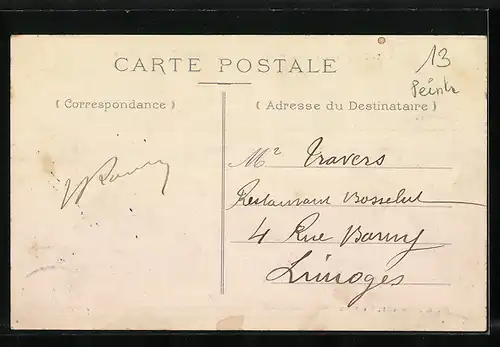 13
Peintr
CARTE POSTALE
( Correspondance )
( Adresse du Destinataire )
Mr Travers
Restaurant Bosselut
4 Rue Barny
Limoges